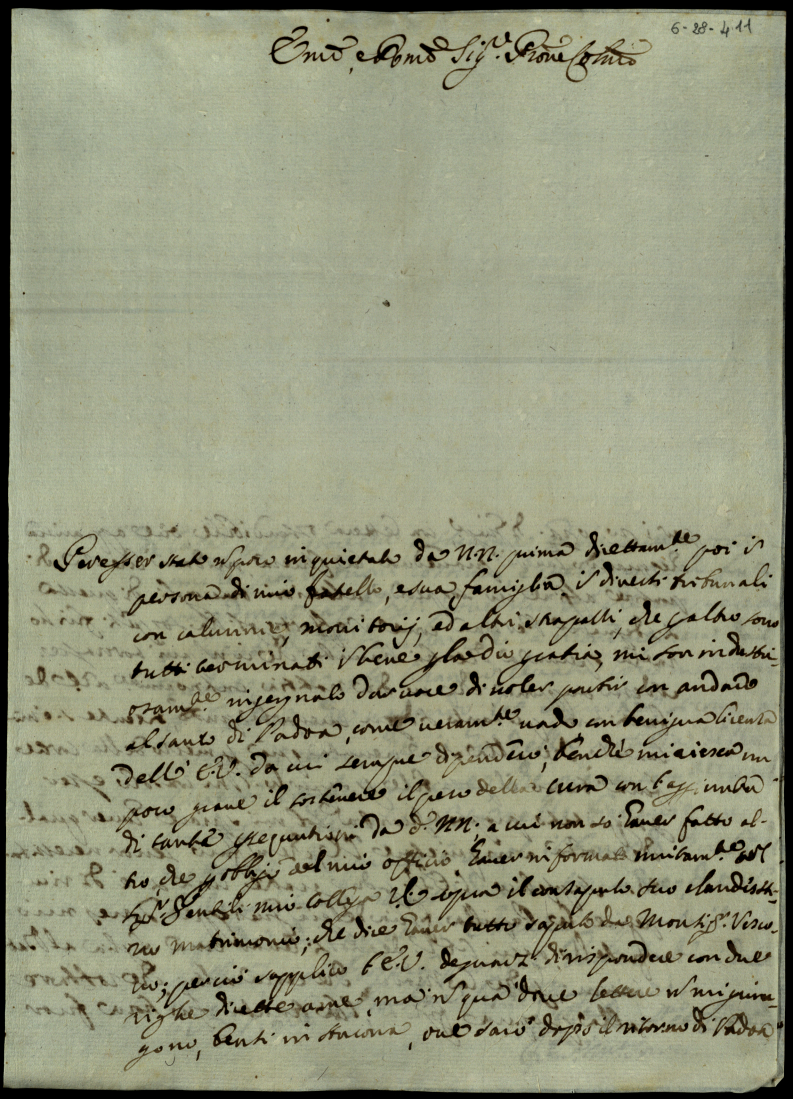 6-28-4.11
Em̃o, e Rm̃o Sig.r Prõne Col̃mo
Per esser stato un poco inquietato da NN. prima direttam.te poi in
persona di mio fratello, e sua famiglia in diversi tribunali
con calunnie, monitorij, ed altri strapalli, che p altro sono
tutti terminati in bene p la Dio gratia, mi son industri-
osam.te ingegnato di voler partir con andare
al santo di Padoa, come veram.te vado con benigna licenza
dell' E.V. da cui sempre dipendero, benche mi riesca un
poco grave il sostenere il peso della cura con l'aggiunta
di tante da d.o NN. a cui non so haver fatto al-
tro, che p obbligo del mio officio haver informato unitam.te col
Sig.r Gentili mio collega il suo clandesti-
no matrimonio; che dice haver tutto saputo da Monsig.r Vesco-
vo; percio supplico l'E.V. di rispondere con due
righe dirette a me, ma non qua dove lettere non mi giun-
gono, bensi in Ancona, ove saro doppo il ritorno di Padoa